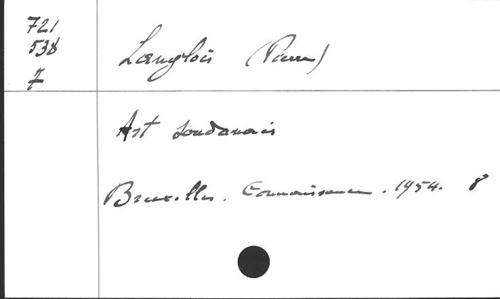 721
538
7
Langlois (Pierre)
Art soudanais
Bruxelles. Connaissance. 1954. 8